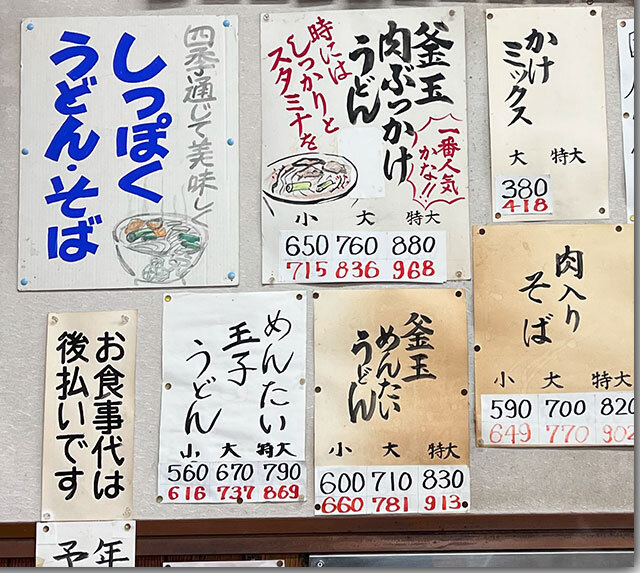 四季通じて美味しく
しっぽく
うどん・そば
釜玉
肉ぶっかけ
うどん
時には
しっかりと
スタミナを
一番人気
かな!!
小 大 特大
650 760 880
715 836 968
かけ
ミックス
大 特大
380
418
肉入り
そば
小 大 特大
590 700 820
649 770 902
お食事代は
後払いです
めんたい
玉子
うどん
小 大 特大
560 670 790
616 737 869
釜玉
めんたい
うどん
小 大 特大
600 710 830
660 781 913